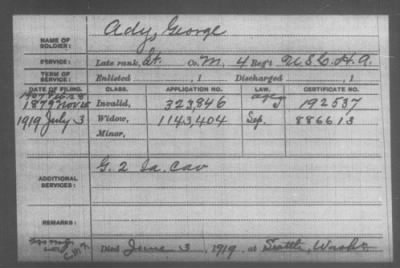 NAME OF SOLDIER: Ady, George
SERVICE: Late rank, Lt. Co. M, 4 Reg't U.S.C.H.A.
TERM OF SERVICE: Enlisted , 1 Discharged , 1
DATE OF FILING. CLASS. APPLICATION NO. LAW. CERTIFICATE NO.
1907 Feb 28
1879 Nov Invalid, 323,846 192537
1919 July 3 Widow, 1143,404 Sep. 886613
Minor,
ADDITIONAL SERVICES: G. 2 Ia. Cav
REMARKS:
Died June 3, 1919, at Seattle, Wash